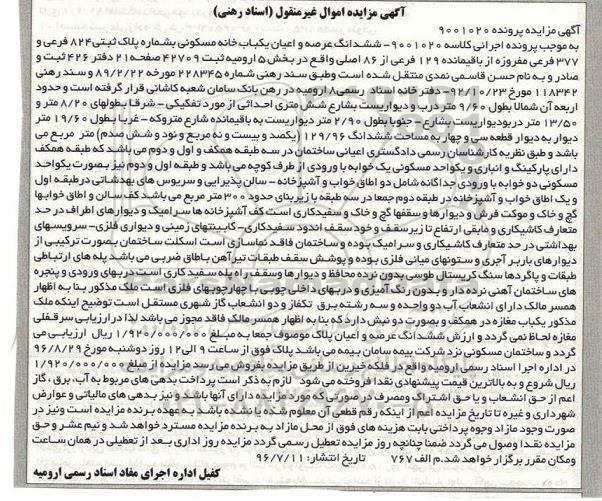 آگهی مزایده اموال غیر منقول (اسناد رهنی)
آگهی مزایده پرونده ۹۰۰۱۰۲۰
به موجب پرونده اجرائی کلاسه ۹۰۰۱۰۲۰- ششدانگ عرصه و اعیان یکباب خانه مسکونی بشماره پلاک ثبتی ۸۲۴ فرعی و
۳۷۷ فرعی مفروزه از باقیمانده ۱۲۹ فرعی از ۸۶ اصلی واقع در بخش ۵ ارومیه ثبت ۴۲۷۰۹ صفحه ۲۱ دفتر ۴۲۶ ثبت و
صادر و به نام حسن قاسمی نمدی منتقل شده است وطبق سند رهنی شماره ۲۲۸۳۴۵ مورخه ۸۹/۲/۲۲ و سند رهنی
۱۱۸۳۴۲ مورخ ۹۲/۱۰/۲۳- دفترخانه اسناد رسمی ارومیه در رهن بانک سامان شعبه کاشانی قرار گرفته است و حدود
اربعه آن شمالا بطول ۹/۶۰ متر درب و دیواریست بشارع شش متری احداثی از مورد تفکیکی - شرقا بطولهای ۸/۲۰ متر و
۱۳/۵۰ متر دربودیواریست بشارع - جنوبا بطول ۲/۹۰ متر دیواریست به باقیمانده شارع متروکه - غربا بطول ۱۹/۶۰ متر
دیوار به دیوار قطعه سی و چهار به مساحت ششدانگ ۱۲۹/۹۶ (یکصد و بیست و نه مربع و نود و شش صدم) متر مربع می
باشد و طبق نظریه کارشناسان رسمی دادگستری اعیانی ساختمان در سه طبقه همکف و اول و دوم می باشد که طبقه همکف
دارای پارکینگ و انباری و یکواحد مسکونی یک خوابه با ورودی از طرف کوچه می باشد و طبقه اول و دوم نیز بصورت یکواحد
مسکونی دو خوابه با ورودی جداگانه شامل دو اطاق خواب و آشپزخانه - سالن پذیرایی و سرویس های بهداشتی درطبقه اول
و یک اطاق خواب و آشپزخانه در طبقه دوم جمعا در سه طبقه با زیربنای حدود ۳۰۰ متر مربع می باشد کف سالن و اطاق خوابها
گچ و خاک و موکت فرش و دیوارها و سقفها گچ و خاک و سفیدکاری است کف آشپزخانه ها سرامیک و دیوارهای اطراف در حد
متعارف کاشیکاری و مابقی ارتفاع تا زیر سقف و خود سقف اندود سفیدکاری - کابینتهای زمینی و دیواری فلزی- سرویسهای
بهداشتی در حد متعارف کاشیکاری و سرامیک بوده و ساختمان فاقد نماسازی است اسکلت ساختمان بصورت ترکیبی از
دیوارهای باربر آجری و ستونهای میانی فلزی بوده و پوشش سقف طبقات تیرآهن باطاق ضربی می باشد پله های ارتباطی
طبقات و پاگردها سنگ کریستال طوسی بدون نرده محافظ و دیوارها وسقف راه پله سفید کاری است دربهای ورودی و پنجره
های ساختمان آهنی نرده دار و بدون رنگ آمیزی و دربهای داخلی چوبی با چهارچوبهای فلزی است ملک مذکور بنا به اظهار
همسر مالک دارای انشعاب آب دو واحده و سه رشته برق تکفاز و دو انشعاب گاز شهری مستقل است توضیح اینکه ملک
مذکور یکباب مغازه در همکف و بصورت دو نبش دارد که بنا به اظهار همسر مالک فاقد مجوز می باشد لذا در ارزیابی سرقفلی
مغازه لحاظ نمی گردد و ارزش ششدانگ عرصه و اعیان پلاک موصوف جمعا به مبلغ ۱/۹۲۰/۰۰۰/۰۰۰ ریال ارزیابی می
گردد و ساختمان مسکونی نزد شرکت بیمه سامان بیمه می باشد پلاک فوق از ساعت ۹ الی ۱۲ روز دوشنبه مورخ ۹۶/۸/۲۹
در اداره اجرا اسناد رسمی ارومیه واقع در فلکه خیرین از طریق مزایده بفروش می رسد مزایده از مبلغ ۱/۹۲۰/۰۰۰/۰۰۰
ریال شروع و به بالاترین قیمت پیشنهادی نقدا فروخته می شود لازم به ذکر است پرداخت بدهی های مربوط به آب، برق، گاز
اعم از حق انشعاب و یا حق اشتراک و مصرف در صورتی که مورد مزایده دارای آنها باشد و نیز بدهی های مالیاتی و عوارض
شهرداری و غیره تا تاریخ مزایده اعم از اینکه رقم قطعی آن معلوم شده یا نشده باشد به عهده برنده مزایده است ونیز در
صورت وجود مازاد وجوه پرداختی بابت هزینه های فوق از محل مازاد به برنده مزایده مسترد خواهد شد و نیم عشر و حق
مزایده نقدا وصول می گردد ضمنا چنانچه روز مزایده تعطیل رسمی گردد مزایده روز اداری بعد از تعطیلی در همان ساعت
ومکان مقرر برگزار خواهد شد.م الف ۷۶۷ تاریخ انتشار: ۹۶/۷/۱۱
کفیل اداره اجرای مفاد اسناد رسمی ارومیه